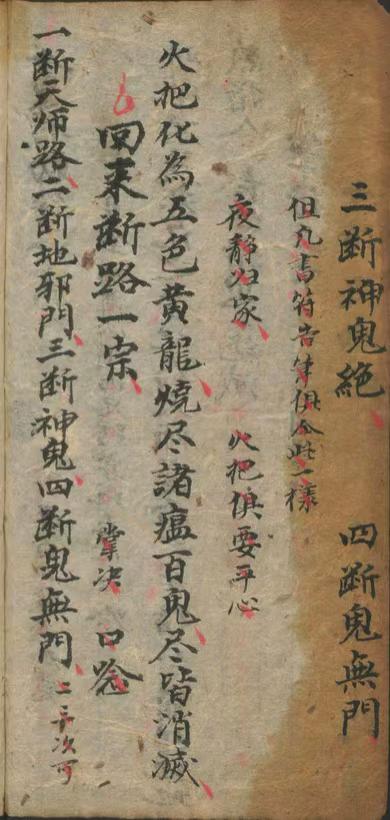 三断神鬼絶 四断鬼無門
但凡書符告筆俱仝此一様
夜静归家 火把俱要平心
火把化為五色黄龍燒尽諸瘟百鬼尽皆消滅
回来断路一宗 掌决 口唸
一断天师路二断地邪門三断神鬼四断鬼無門二三次可